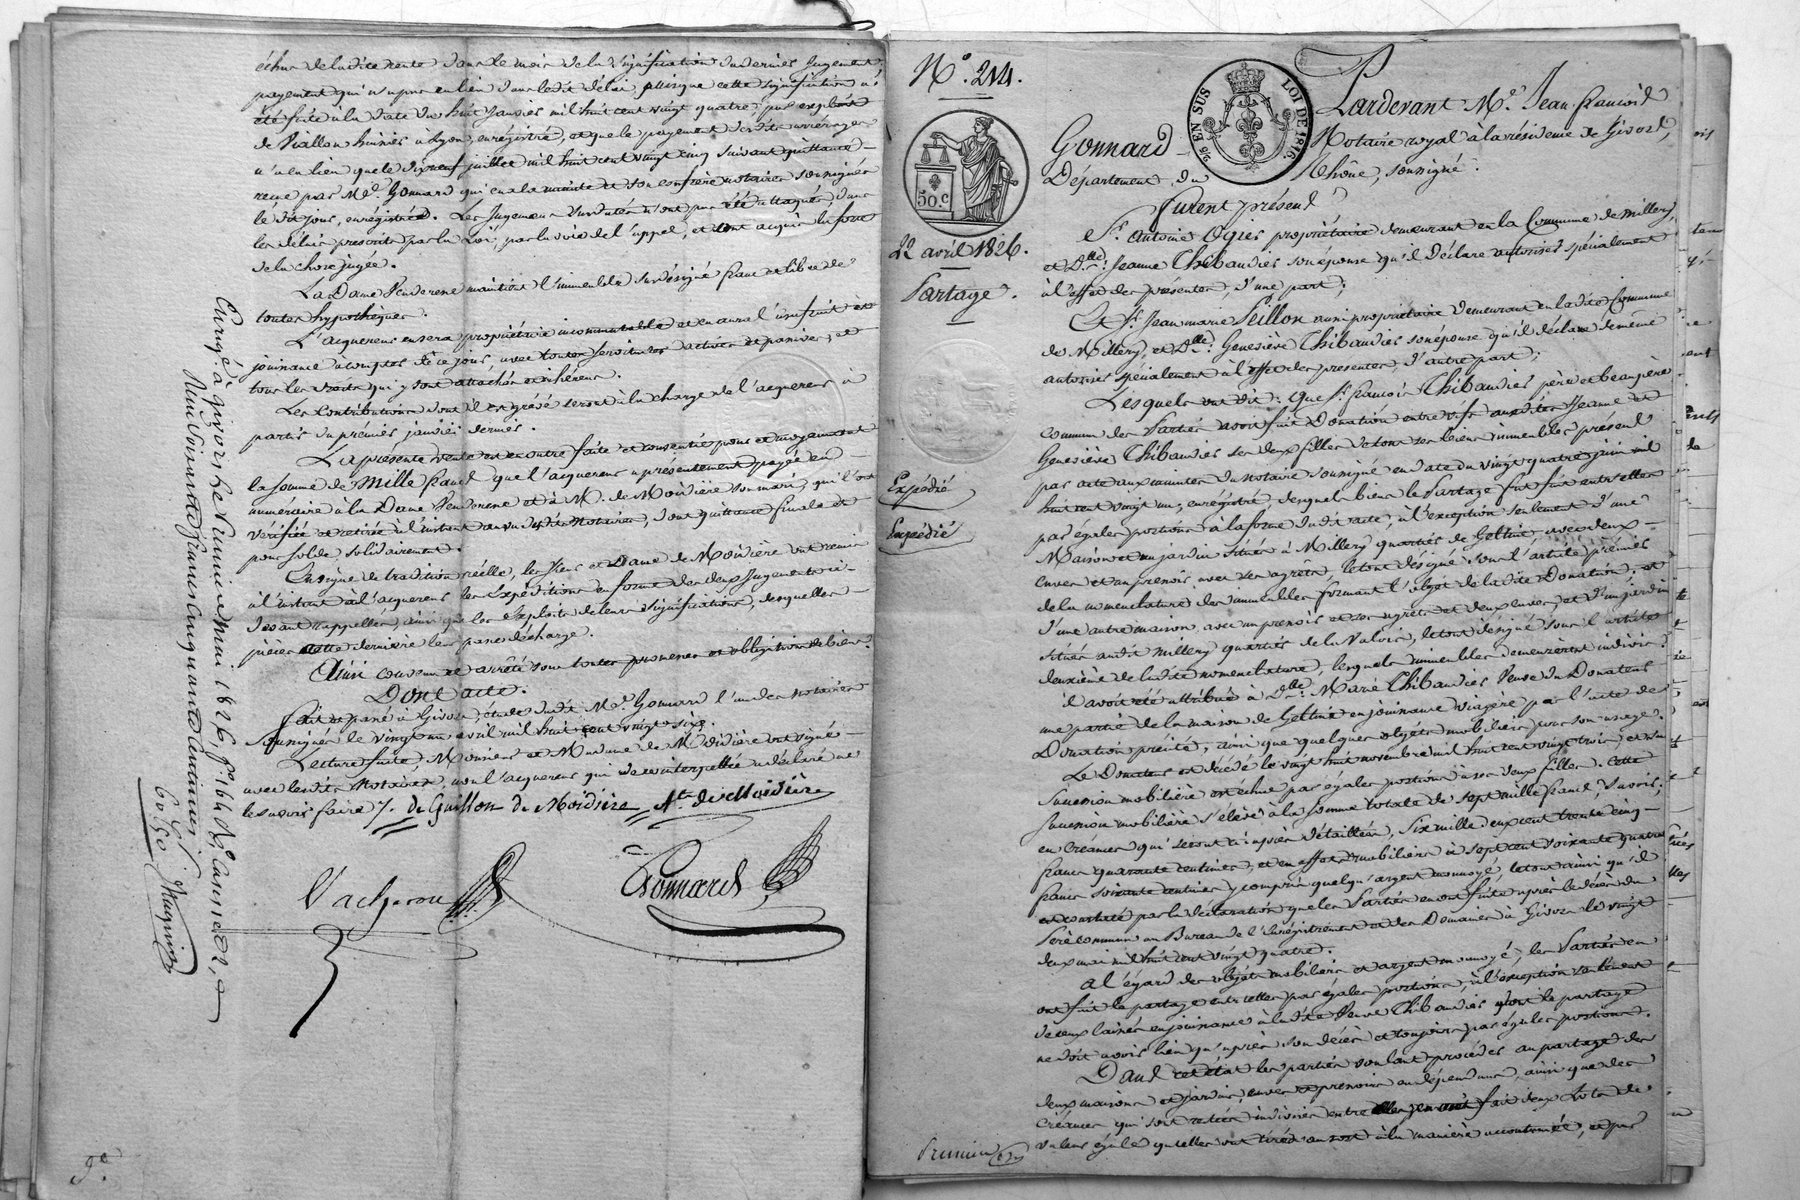 échus de la dite rente dans le mois de la signification du dernier Jugement,
payement qui n'a pas eu lieu dans le dit délai puisque cette signification a
été faite à la date du huit Janvier mil huit cent vingt quatre, par exploit
de Viallon huissier à Lyon, enregistré, et que le payement desdits arrérages
n'a eu lieu que le dix neuf juillet mil huit cent vingt cinq suivant quittance
reçue par Me. Gonnard qui en a la minute et son confrère notaires soussignés
le dit jour, enregistrée. Les Jugemens susdatés n'ont pas été attaqués, dans
les délais prescrits par la Loi, par la voie de l'appel, et ont acquis la force
de la chose jugée.
La Dame Venderesse maintient l'immeuble sus désigné franc et libre de
toutes hypothèques.
L'acquereur en sera propriétaire incommutable et en aura l'usufruit et
jouissance à compter de ce jour, avec toutes servitudes actives et passives, et
tous les droits qui y sont attachés et inhérens.
Les Contributions dont il est grévé seront à la charge de l'acquereur à
partir du prémier janvier dernier.
La présente vente est en outre faite et consentie pour et moyennant
la somme de Mille francs que l'acquereur a présentement payée en
numéraire à la Dame Venderesse et à M. de Moidière son mari, qui l'ont
vérifiée et retirée à l'instant au vu desdits Notaires, dont quittance finale et
pour solde solidairement.
En signe de tradition réelle, les Sieur et Dame de Moidière ont remis
à l'instant à l'acquereur les Expéditions en forme des deux Jugements ci-
devant rappellés, ainsi que les exploits de leurs significations, desquelles
pièces cette dernière leur passe décharge.
Ainsi convenu et arrêté sous toutes promesses et obligation de biens.
Dont acte.
Fait et passé à Givors, étude dudit Me. Gonnard l'un des notaires
soussignés le vingt un avril mil huit cent vingt six.
Lecture faite, Monsieur et Madame de Moidière ont signé
avec lesdits Notaires, non l'acquereur qui de ce interpellé a déclaré ne
le savoir faire /. de Guillon de Moidière At. de Moidière
Vacheron Gonnard
Enregé. à givors le Premier mai 1826, fo. 164
Reçu Soixante francs cinquante centimes
60 f 50
9e.
No. 214.
50 c
22 avril 1826.
Partage.
Expédié
Expédié
25 EN SUS LOI DE 1816
Pardevant Me. Jean françois
Gonnard Notaire royal à la résidence de Givors,
Département du Rhône, soussigné:
Furent présens
Sr. Antoine Ogier propriétaire demeurant en la Commune de Millery,
et Dlle. Jeanne Thibaudier son épouse qu'il déclare autoriser spécialement
à l'effet des présentes, d'une part;
Et Sr. Jean marie Peillon aussi propriétaire demeurant en la dite Commune
de Millery, et Dlle. Geneviève Thibaudier son épouse qu'il déclare de même
autoriser spécialement à l'effet des présentes, d'autre part;
Lesquels ont dit: que Sr. françois Thibaudier père et beaupère
commun des Parties avoit fait Donation entre vifs auxdites Jeanne et
Geneviève Thibaudier ses deux filles de tous ses biens immeubles présens
par acte aux minutes du notaire soussigné en date du vingt quatre juin mil
huit cent vingt un, enregistré, desquels biens le Partage fut fait entr'elles
par égales portions à la forme dudit acte, à l'exception seulement d'une
Maison et un jardin situés à Millery quartier de Geltine, avec deux
cuves et un pressoir avec ses agrêts, le tout désigné sous l'article prémier
de la nomenclature des immeubles formant l'objet de la dite Donation, et
d'une autre maison avec un pressoir et ses agrêts et deux cuves, et d'un jardin
situés audit Millery quartier de la Valois, le tout désigné sous l'article
deuxième de la dite nomenclature, lesquels immeubles demeurèrent indivis.
Il avoit été attribué à Dlle. Marie Thibaudier Veuve du Donateur
une partie de la maison de Geltine en jouissance viagère par l'acte de
Donation précité, ainsi que quelques objets mobiliers pour son usage.
Le Donateur est décédé le vingt huit novembre mil huit cent vingt trois, et sa
Succession mobilière est échue par égales portions à ses deux filles. Cette
succession mobilière s'élève à la somme totale de sept mille francs, savoir:
en créances qui seront ci-après détaillées, six mille deux cent trente cinq
francs quarante centimes, et en effets mobiliers à sept cent soixante quatre
francs soixante centimes y compris quelqu'argent monnoyé, le tout ainsi qu'il
est constaté par la déclaration que les Parties en ont faite après le décès du
Père commun au Bureau de l'Enregistrement et des Domaines à Givors le vingt
deux mai mil huit cent vingt quatre.
A l'égard des objets mobiliers et argent monnoyé, les Parties en
ont fait le partage entr'elles par égales portions, à l'exception seulement
de ceux laissés en jouissance à la dite Veuve Thibaudier dont le partage
ne doit avoir lieu qu'après son décès et toujours par égales portions.
Dans cet état les parties voulant procéder au partage des
deux maisons et jardins, cuves et pressoirs en dépendans, ainsi que des
créances qui sont restées indivises entre elles, en ont fait deux Lots de
valeur égale qu'elles ont tirés au sort à la manière accoutumée, et par